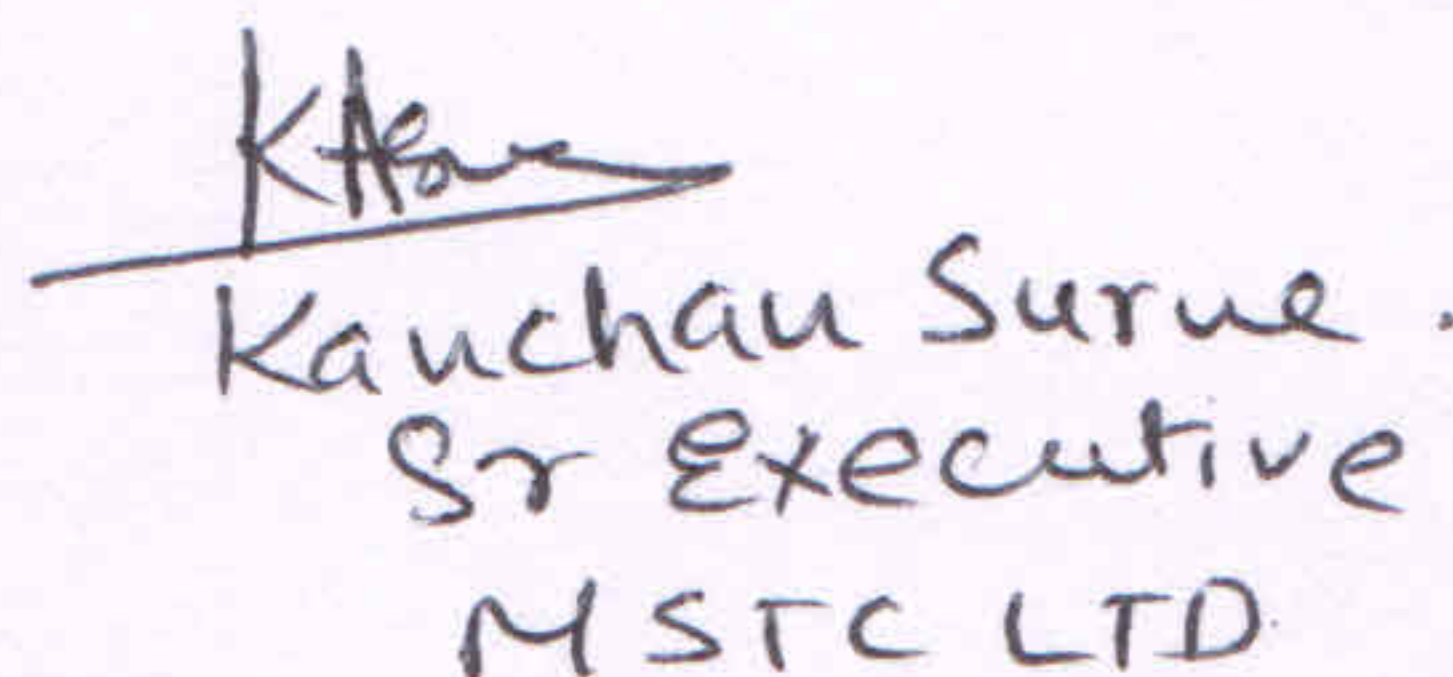 Kanchan Surve.
Sr Executive
MSTC LTD.